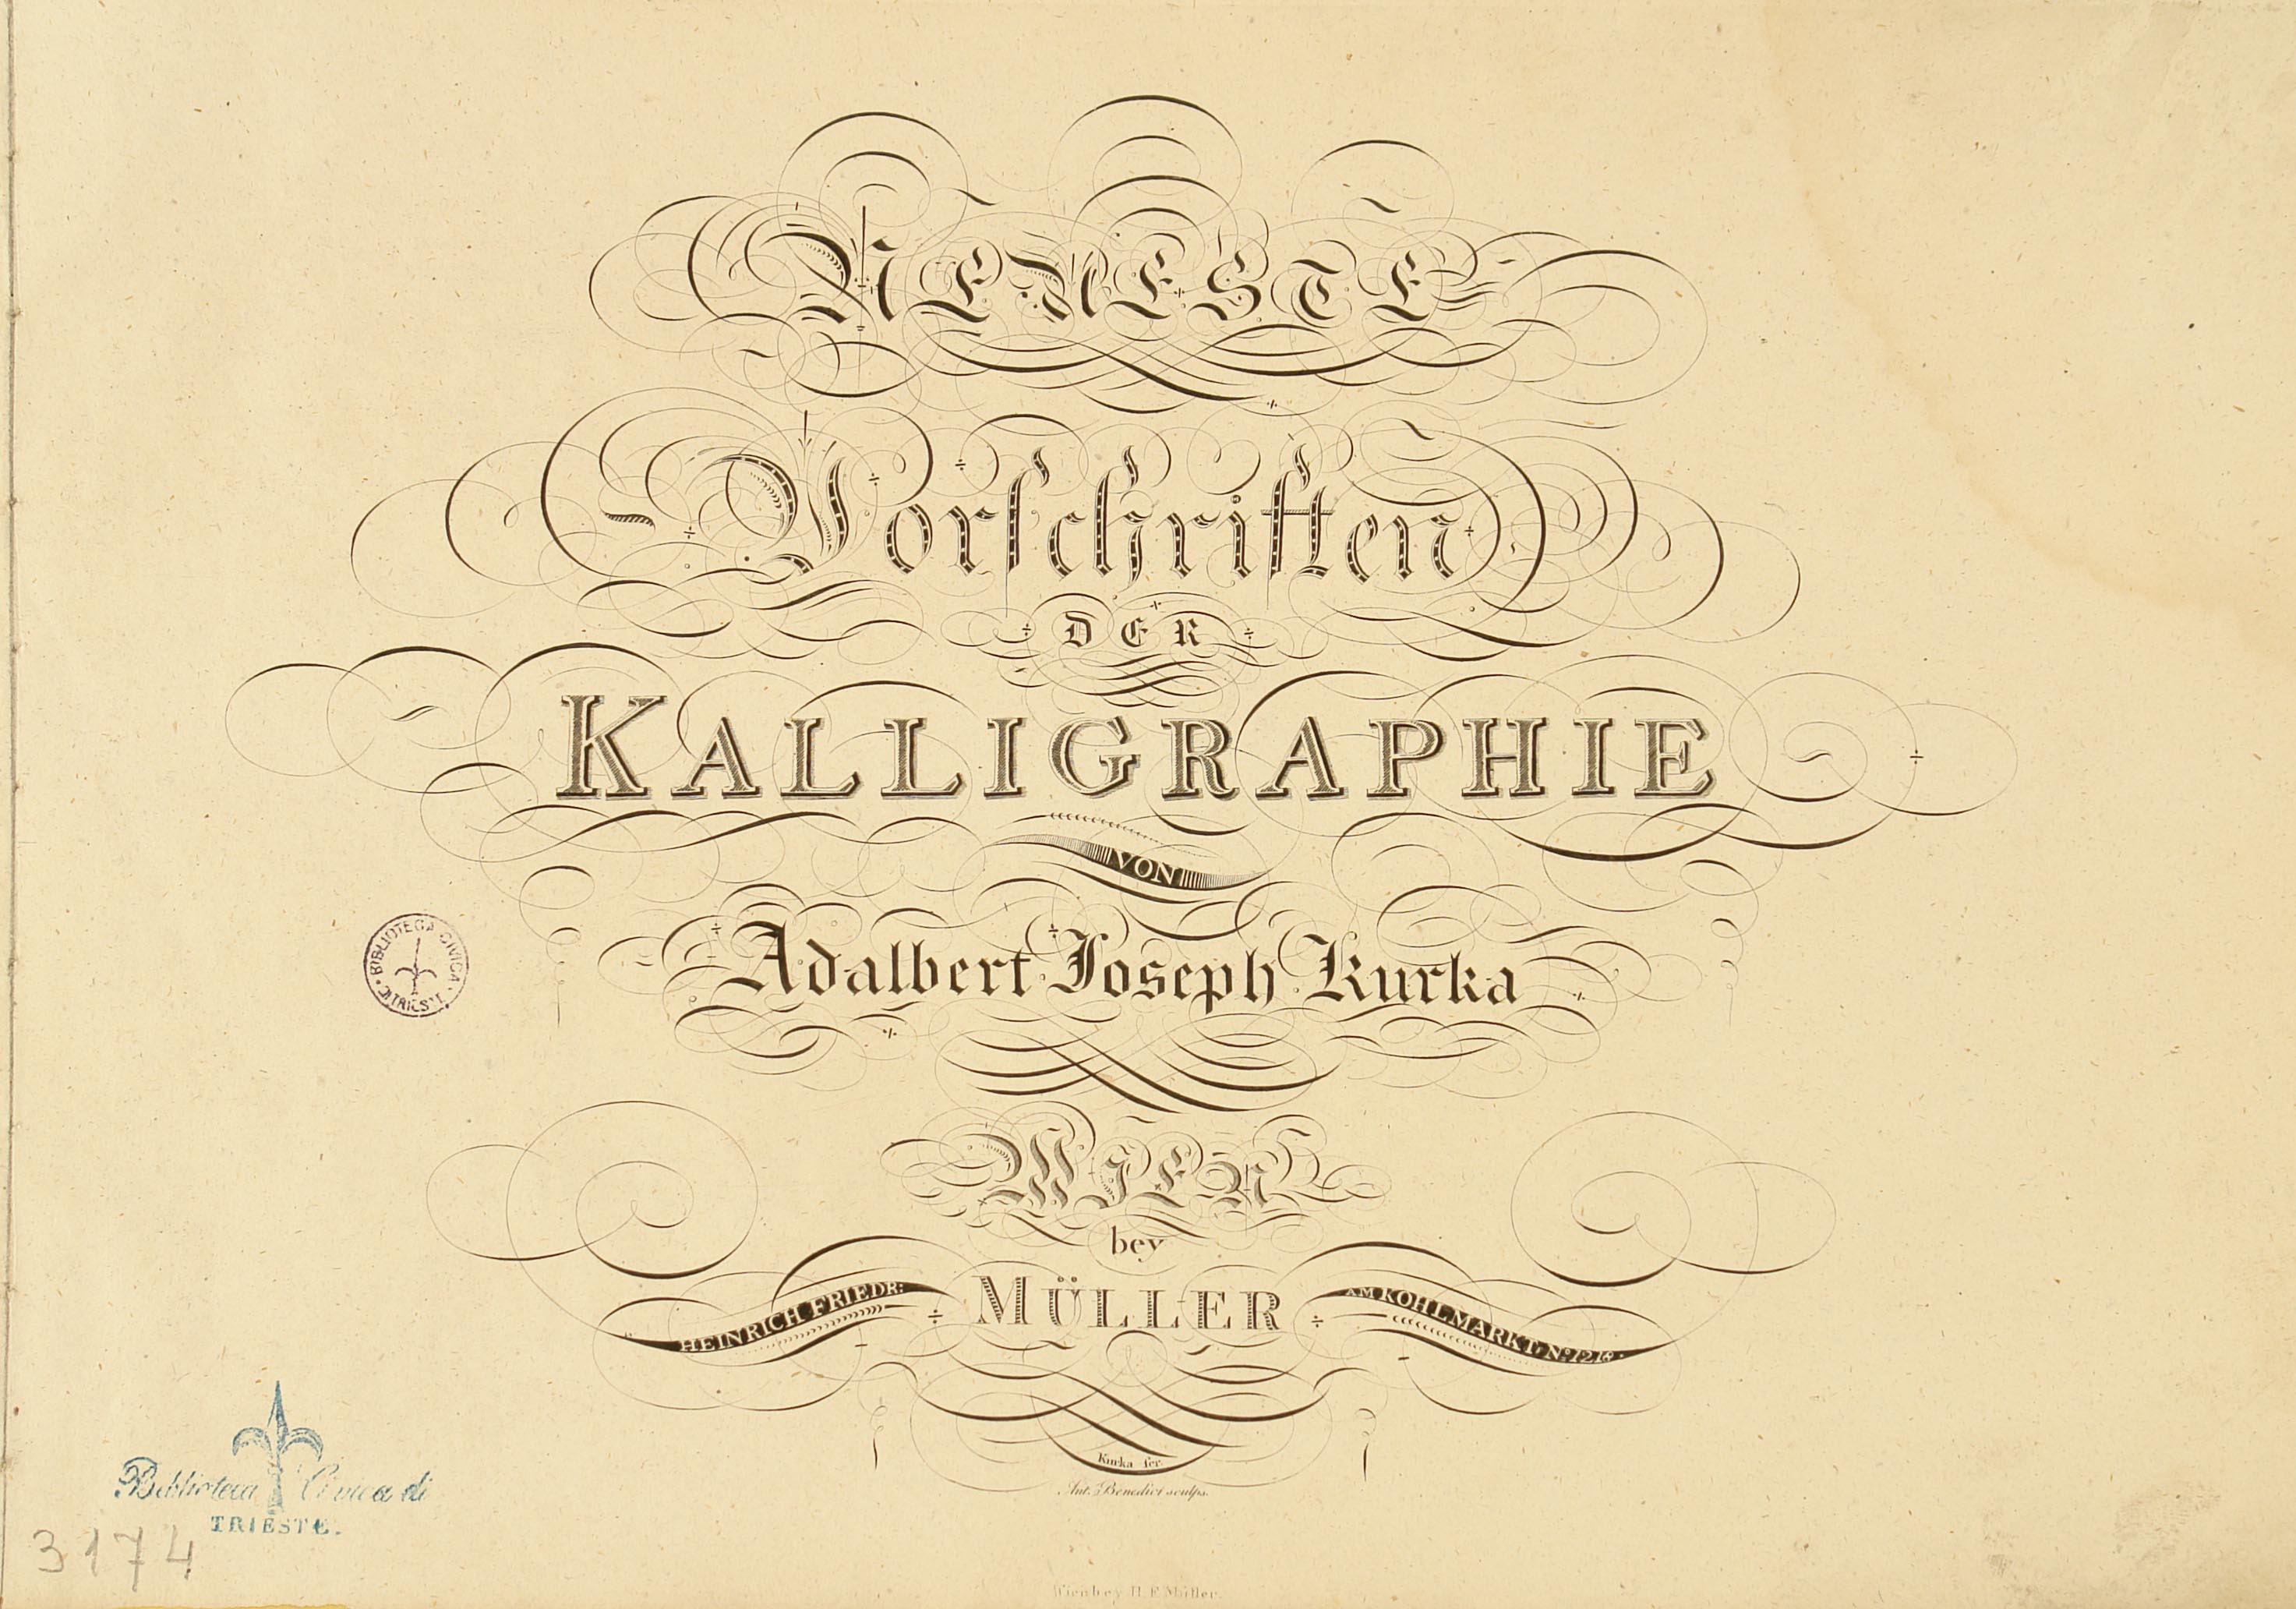 NEUESTE
Vorschriften
DER
KALLIGRAPHIE
VON
Adalbert Joseph Kurka
WIEN
bey
HEINRICH FRIEDR: MÜLLER AM KOHLMARKT Nº 1218.
Kurka scr.
Ant. Benedict sculps.
Wien bey H. F. Müller.
BIBLIOTECA CIVICA DI TRIESTE
Biblioteca Civica di
TRIESTE.
3174